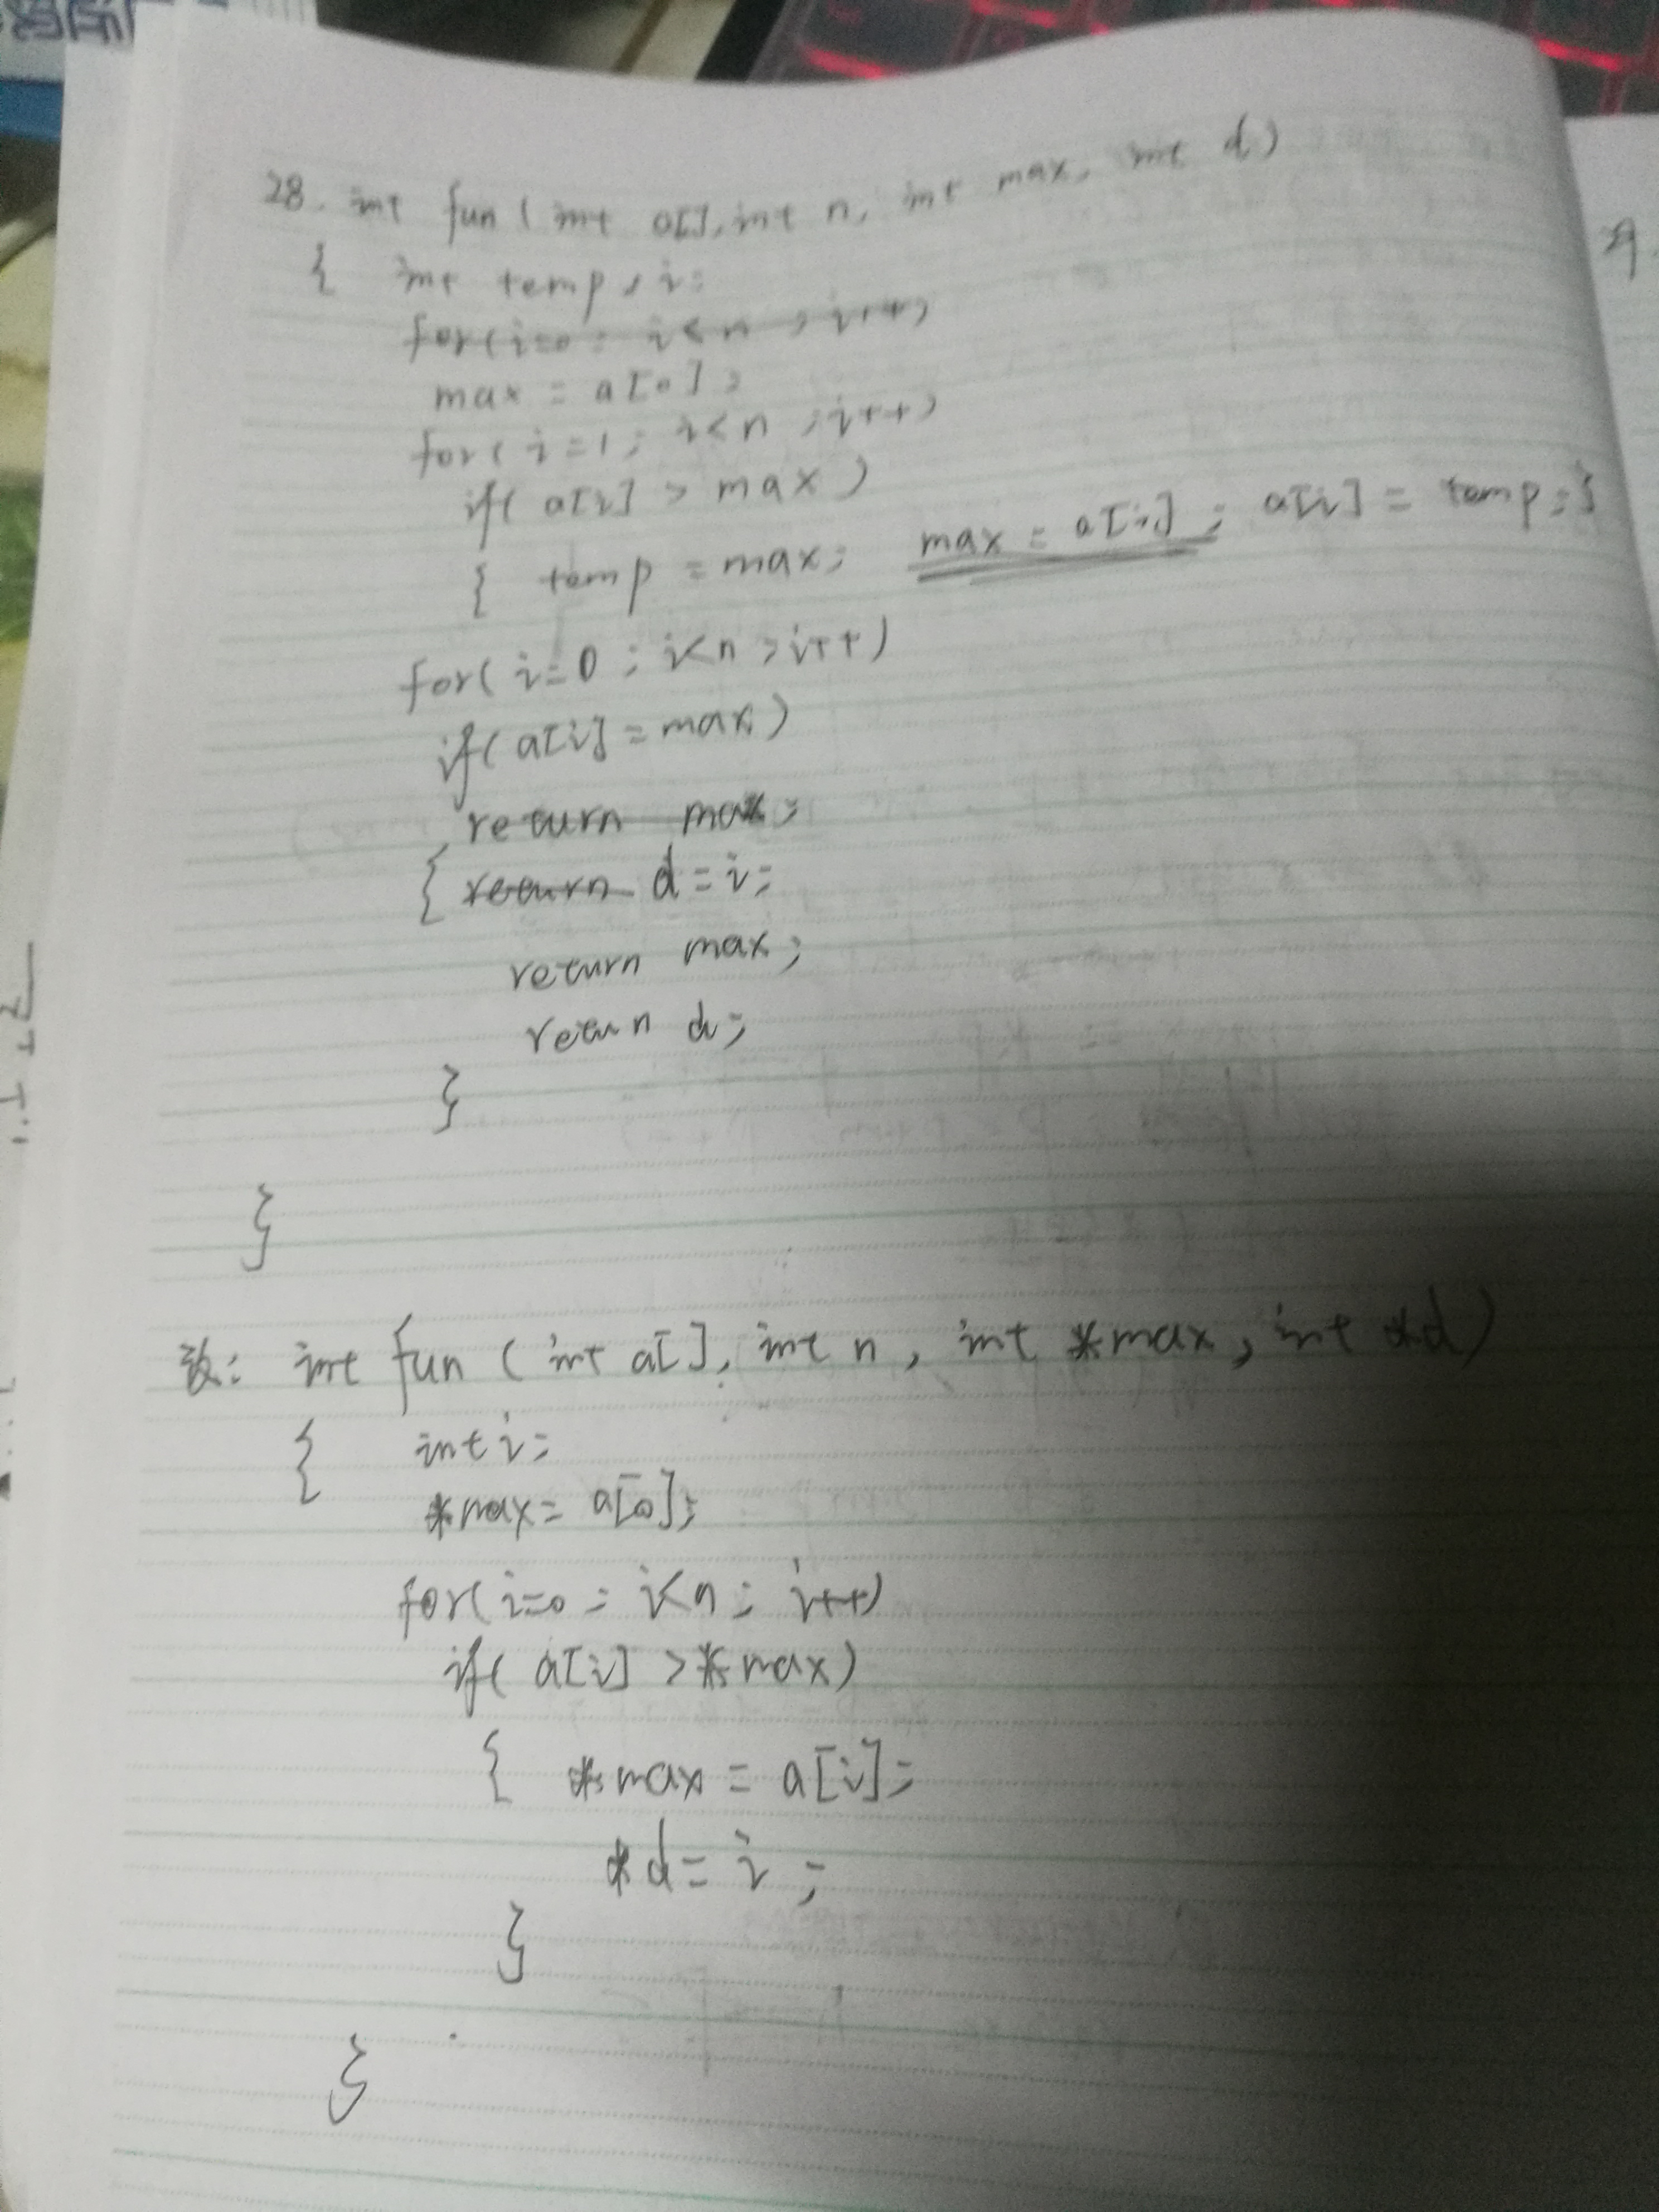 28. int fun ( int a[], int n, int max, int d )
{ int temp, i;
for(i=0; i<n; i++)
max = a[0];
for( i=1; i<n; i++)
if( a[i] > max )
{ temp = max; max = a[i]; a[i] = temp; }
for( i=0; i<n; i++)
if( a[i] = max )
return max;
{ return d = i;
return max;
retun d;
}
}
改: int fun ( int a[], int n, int *max, int *d )
{ int i;
*max = a[0];
for(i=0; i<n; i++)
if( a[i] > *max )
{ *max = a[i];
*d = i;
}
}